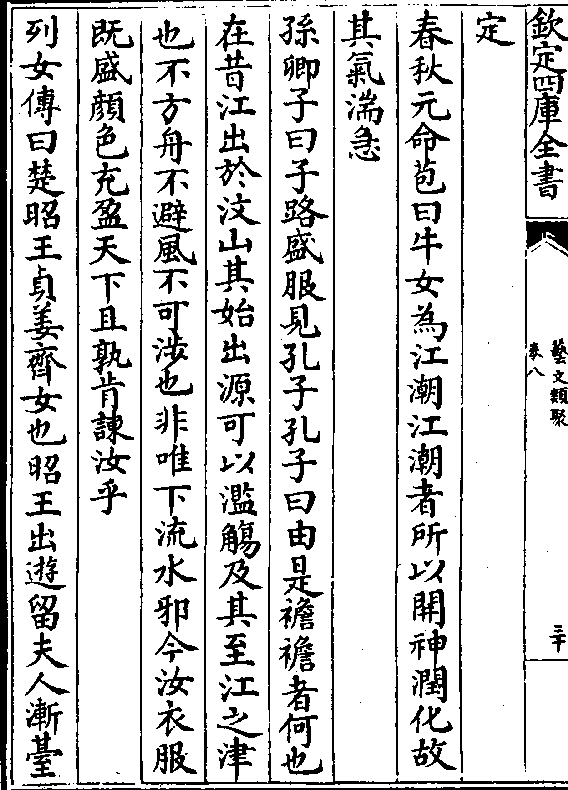 欽定四庫全書
藝文類聚
卷八
三十
定
春秋元命苞曰牛女為江潮江潮者所以開神潤化故
其氣湍急
孫卿子曰子路盛服見孔子孔子曰由是襜襜者何也
在昔江出於汶山其始出源可以濫觴及其至江之津
也不方舟不避風不可涉也非唯下流水邪今汝衣服
既盛顔色充盈天下且孰肯諫汝乎
列女傳曰楚昭王貞姜齊女也昭王出遊留夫人漸臺